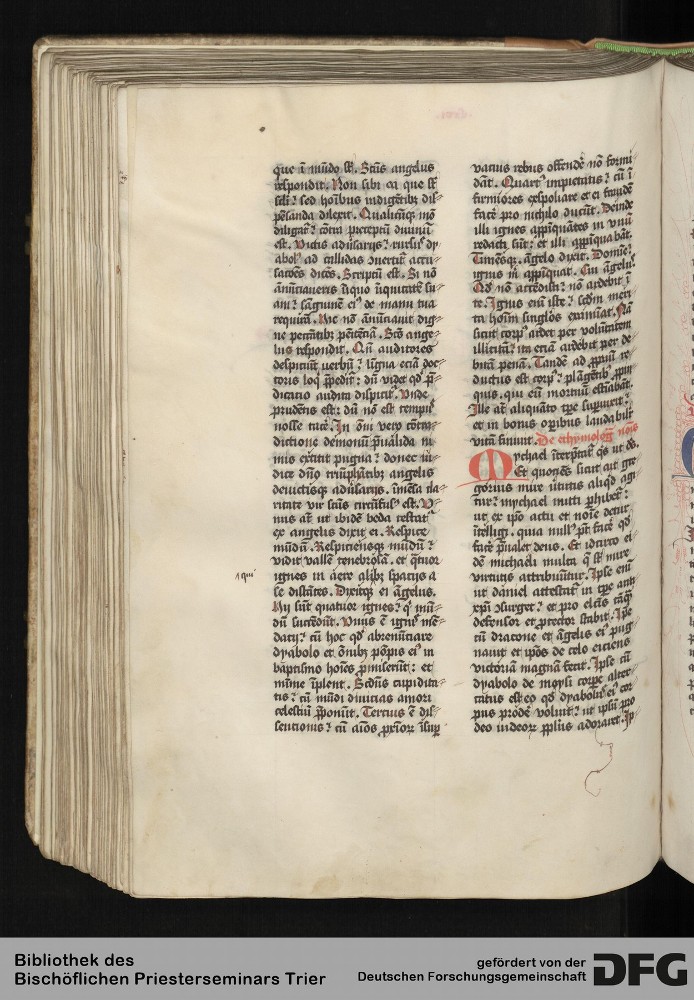 que ī mūdo st̄. Scūs angelus
respondit. Non sibi ea que st̄
seli: sed hoībus indigētibꝫ dis-
pēsanda dilexit. Qualicūqꝫ mō
diligat: cōtra preceptū diuinū
est. Victis adūsarijs: rursus dy
abolꝰ ad callidas ꝯuertit accu-
satōes dicēs. Scriptū est. Si nō
anūciaueris īiquo īiquitatē su
am: sāguinē eiꝰ de manu tua
requirā. Hic nō anūciauit dig-
ne peccātibꝫ penitēciā. Scūs ange-
lus respondit. Qn̄ auditores
despiciūt uerbū: lingua eciā doc-
toris loqi p̄pedit: dū videt qd̄ p̄-
dicatio audita despicit. Vnde
prudētis est: dū nō est tempꝰ
nosse tacē. In om̄i vero cōtra-
dictione demonū p̄ualida ni-
mis extitit pugna: donec iu-
dice dn̄o triūphātibꝫ angelis
deuictisqꝫ adūsarijs. īmēsa cla-
ritate vir scūs circūfusꝰ est. V-
nus at̄ ut ibidē beda testat
ex angelis dixit ei. Respice
mūdū. Respiciensqꝫ mūdū:
vidit vallē tenebrosā. et qͣtuor
ignes in aere aliqͥbꝫ spacijs a
1 qui
se distātes. Dixitqꝫ ei āgelus.
Hij sūt quatuor ignes: qͥ mū-
dū succēdūt. Vnus ē ignis mē-
dacij: cū hoc qd̄ abrenūciare
dyabolo et ōnibꝫ pōpis eiꝰ in
baptismo hoīes ꝓmiserūt: et
mīme īplent. Scd̄us cupidita-
tis: cū mūdi diuicias amori
celestiū p̄ponūt. Tercius ē dis-
sencionis: cū aīos ꝓxīorꝫ īsup
vacuis rebus offendē nō formi-
dāt. Quartꝰ impietatis: cū ī
firmiores expoliare et ei fraudē
facē pro nichilo ducūt. Deinde
illi ignes appīquātes in vnū
redacti sūt: et illi appīquabāt.
Timēsqꝫ āgelo dixit. Domie:
ignis m̄ appīquat. Cui āgelus.
Qd̄ nō accēdisti: nō ardebit ī
te. Ignis em̄ iste: scd̄m meri-
ta hoīm singlos examīat. Nā
sicut corpꝰ ardet per volūtatem
illicitā: ita eciā ardebit per de-
bitā penā. Tandē ad ꝓpriū re-
ductus est corpꝰ: plāgētibꝫ ꝓpin
quis. qui eū mortuū estīabāt.
Ille at̄ aliquāto tp̄e supuixit:
et in bonis oꝑibus laudabilr̄
vitā finiuit. De ethymologia nois
Mychael īterp̄tat̄ qs ut ds.
Et quocēs sicut ait gre-
gorius mire v̄tutis aliqd̄ agi
tur: mychael mitti ꝑhibet̄:
ut ex ipō actu et noīe detur
ītelligi. quia nullꝰ pt̄ facē qd̄
facē p̄ualet deus. Et idcirco ei-
dē michaeli multa q̄ st̄ mire
virtutis attribuūtur. Ipse em̄
ut daniel attestat̄ in tp̄e anti
xp̄i ꝯsurget: et pro elcīs tāqꝫ
defensor et ꝓtector stabit. Ipe
cū dracone et āgelis eiꝰ pug-
nauit et ip̄os de celo eiciens
victoriā magnā fecit. Ipse cū
dyabolo de moysi corꝑe alter-
catus est eo qd̄ dyabolus eiꝰ cor-
pus prodē voluit: ut ip̄m pro
deo iudeorꝫ ppl̄us adoraret. Ip-
Bibliothek des
Bischöflichen Priesterseminars Trier
gefördert von der
Deutschen Forschungsgemeinschaft
DFG